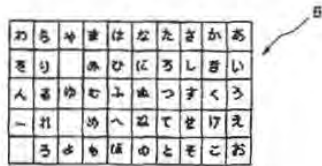 わ ら や ま は な た さ か あ
を り み ひ に ち し き い
ん る ゆ む ふ ぬ つ す く う
ー れ め へ ね て せ け え
ろ よ も ほ の と そ こ お